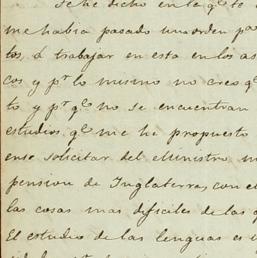 Se he dicho en la qe te
me habia pasado una orden pa
tos, á trabajar en esta en los as
cos y pr lo mismo no creo qe
to y pr qe no se encuentran
estudios qe me he propuesto
ense solicitar del Ministro
pension de Inglaterra, con el
las cosas mas dificiles de las q
El estudio de las lenguas es u